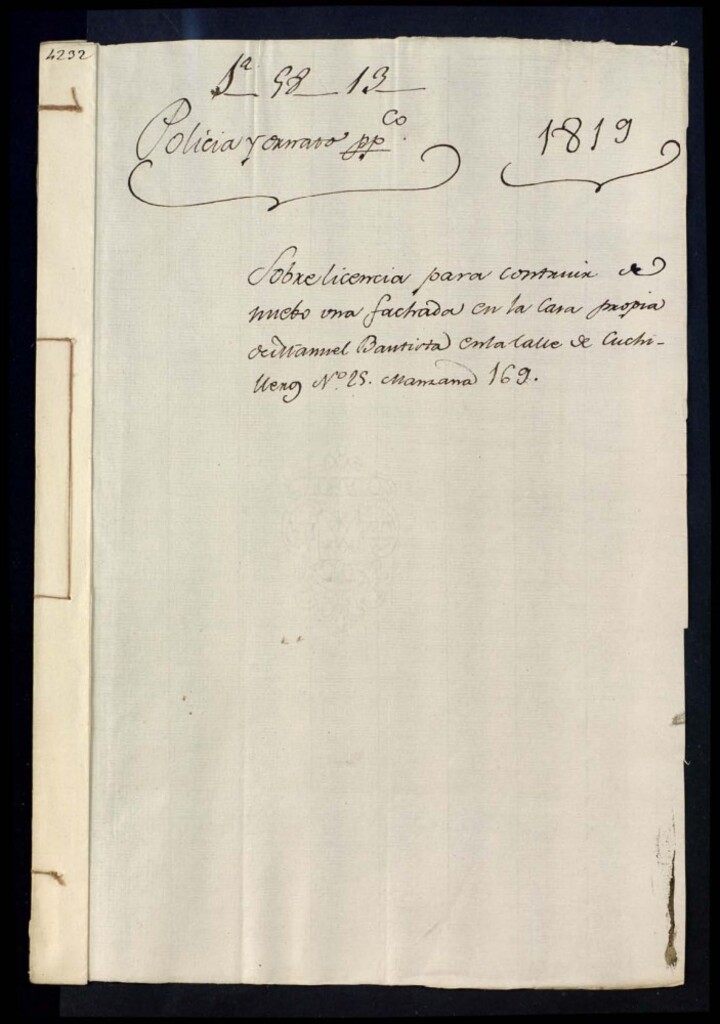 4232
1ª 58 13
Policia y ornato ppCo.
1819
Sobre licencia para contruir de
nuebo una fachada en la Casa propia
de Manuel Bautista en la Calle de Cuchi-
lleros Nº 25. Manzana 169.